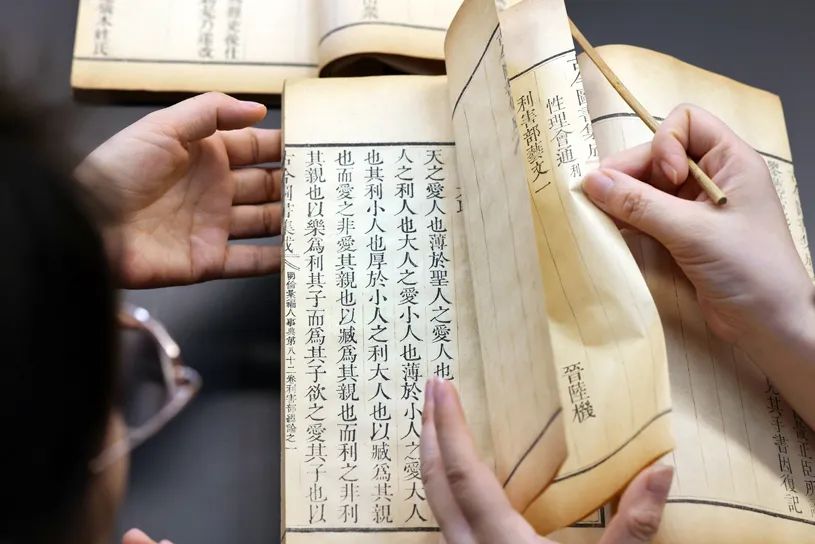 其手書因復記
性理會通利
利害部藝文一
晉陸機
天之愛人也薄於聖人之愛人也
人之利人也大人之愛小人也薄於小人之愛大人
也其利小人也厚於小人之利大人也以臧為其親
也而愛之非愛其親也以臧為其親也而利之非利
其親也以樂為利其子而為其子欲之愛其子也以
古今圖書集成
明倫彙編人事典第八十二卷利害部總論之一